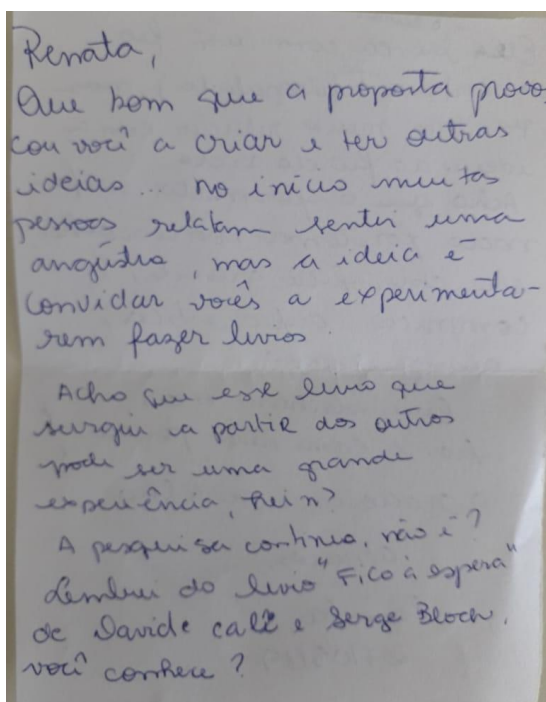 Renata,
Que bom que a proposta provo
cou você a criar e ter outras
ideias... no início muitas
pessoas relatam sentir uma
angústia, mas a ideia é
convidar vocês a experimenta-
rem fazer livros.
Acho que esse livro que
surgiu a partir dos outros
pode ser uma grande
experiência, hein?
A pesquisa continua, não é?
Lembrei do livro "Fico à espera"
de Davide cali e Serge Bloch,
você conhece?